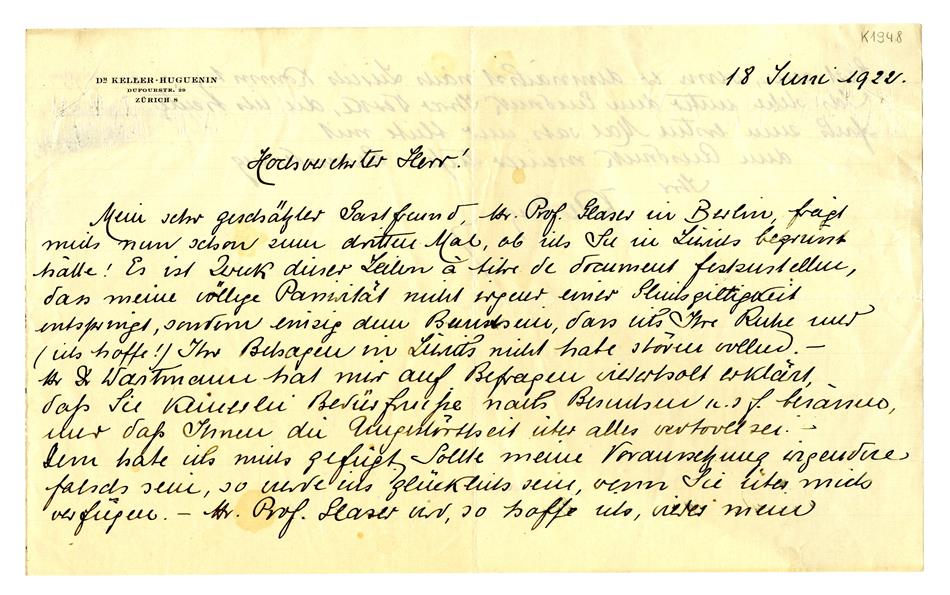 K1948
DR KELLER-HUGUENIN
DUFOURSTR. 29
ZÜRICH 8
18 Juni 1922.
Hochverehrter Herr!
Mein sehr geschätzter Gastfreund, Hr. Prof. Glaser in Berlin, frägt
mich nun schon zum dritten Mal, ob ich Sie in Zürich begrüsst
hätte! Es ist Zweck dieser Zeilen à titre de document festzustellen,
dass meine völlige Passivität nicht irgend einer Gleichgiltigkeit
entspringt, sondern einzig dem Bewusstsein, dass ich Ihre Ruhe und
(ich hoffe!) Ihr Behagen in Zürich nicht habe stören wollen. –
Hr Dr Wartmann hat mir auf Befragen wiederholt erklärt,
daß Sie keinerlei Bedürfniße nach Besuchen u. s. f. besässen,
und daß Ihnen die Ungestörtheit über alles wertvoll sei. –
Dem habe ich mich gefügt. Sollte meine Voraussetzung irgendwie
falsch sein, so werde ich glücklich sein, wenn Sie über mich
verfügen. – Hr. Prof. Glaser wird, so hoffe ich, wieder mein